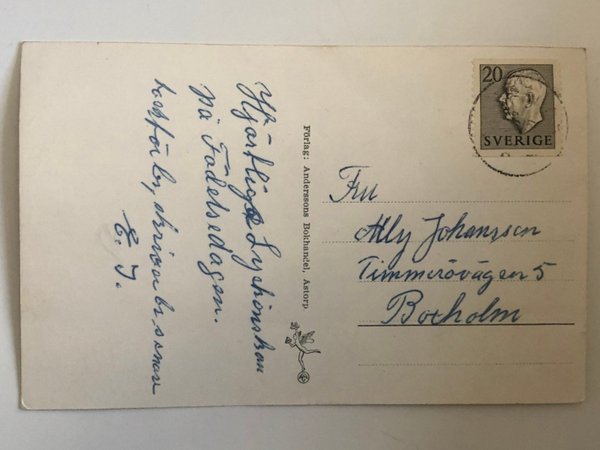 Hjärtliga Lyckönskan
på Födelsedagen.
skriver br. senare
E. J.
Förlag: Anderssons Bokhandel, Åstorp
20
SVERIGE
Fru
Ally Johansson
Timmerövägen 5
Boxholm